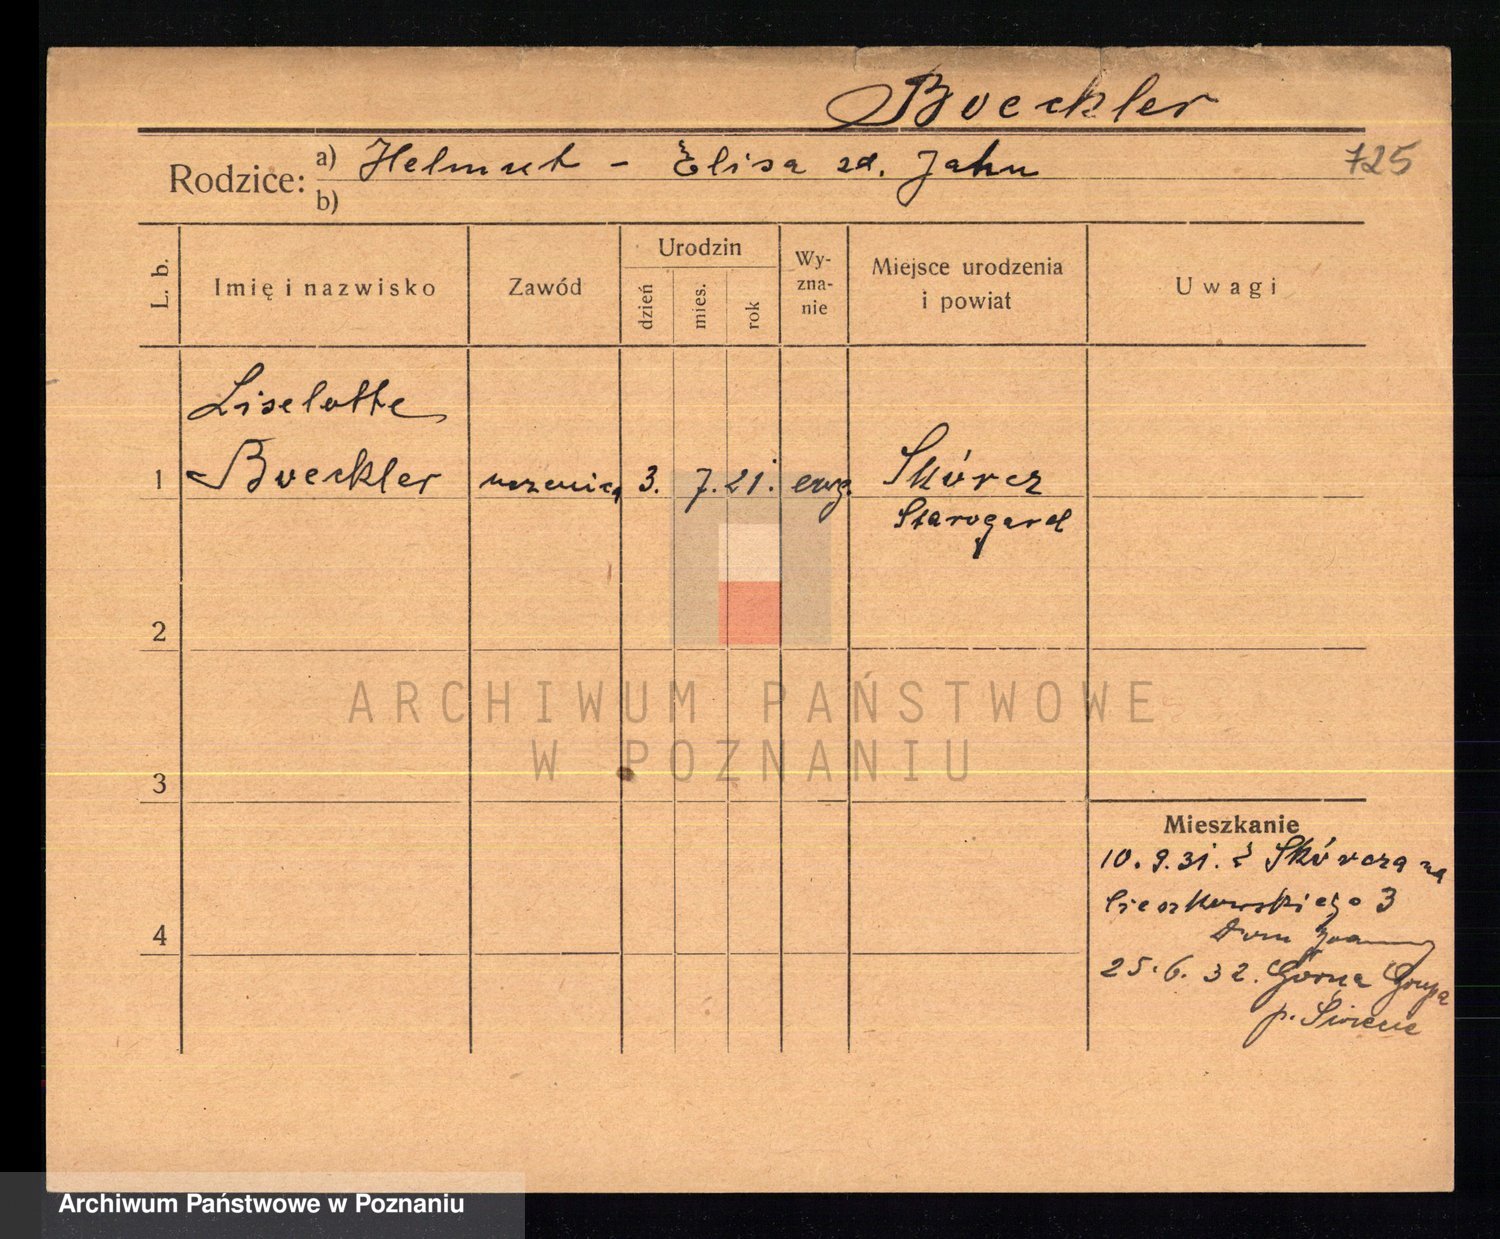 Boeckler
Rodzice: a) Helmut - Elisa zd. Jahn
725
b)
L. b.
Imię i nazwisko
Zawód
Urodzin
dzień
mies.
rok
Wy-
zna-
nie
Miejsce urodzenia
i powiat
Uwagi
Liselotte
1 Boeckler uczenica 3. 7. 21. ewg. Skórcz
Starogard
2
ARCHIWUM PAŃSTWOWE
W POZNANIU
3
Mieszkanie
10.9.31. z Skórcza na
Cieszkowskiego 3
4
Dom
25.6.32. Górna Grupa
p. Świecie
Archiwum Państwowe w Poznaniu